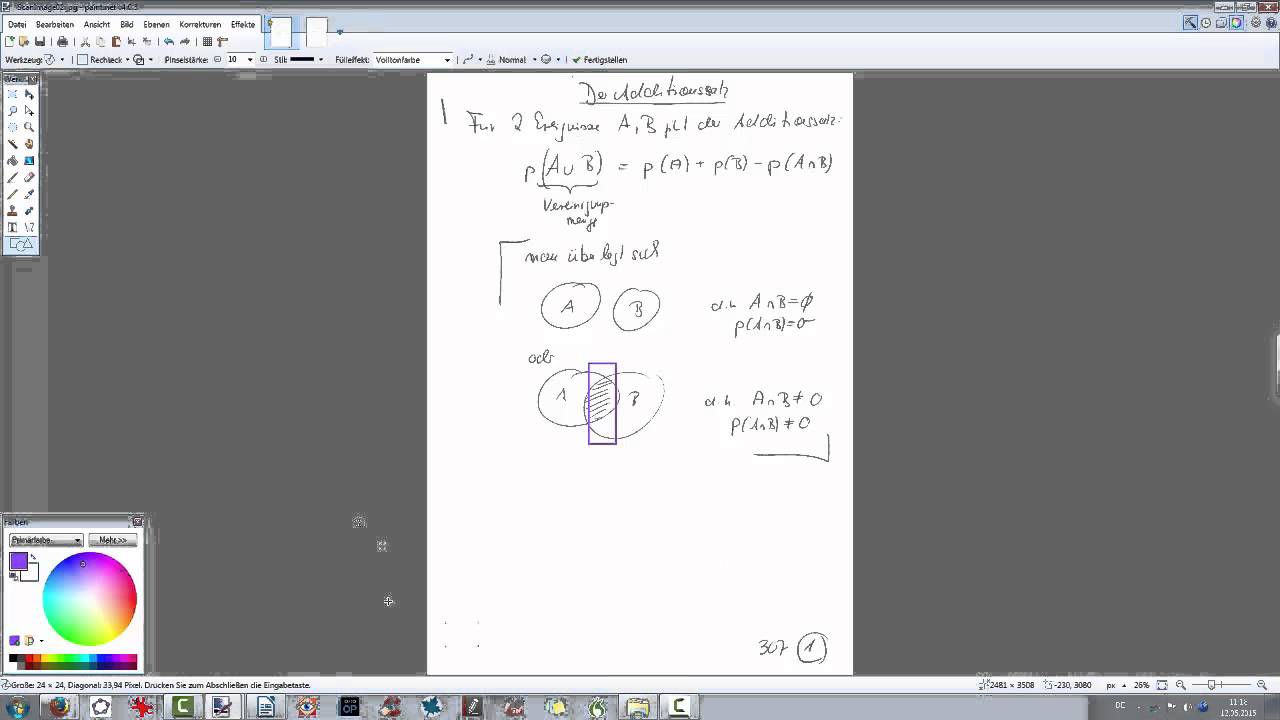 ScanImage02.jpg - paint.net v4.0.5
Datei Bearbeiten Ansicht Bild Ebenen Korrekturen Effekte
Werkzeug: Rechteck Pinselstärke: 10 Stil: Fülleffekt: Volltonfarbe Normal Fertigstellen
Der Additionssatz
Für 2 Ereignisse A, B gilt der Additionssatz:
p(A∪B) = p(A) + p(B) - p(A∩B)
Vereinigungs-
menge
man überlegt sich
A B d.h. A∩B=∅
p(A∩B)=0
oder
A B d.h. A∩B≠0
p(A∩B)≠0
Farben
Primärfarbe Mehr >>
307 1
Größe: 24 × 24, Diagonal: 33,94 Pixel. Drücken Sie zum Abschließen die Eingabetaste. 2481 × 3508 -230, 3080 px 26%
OP
DE 11:18
12.05.2015